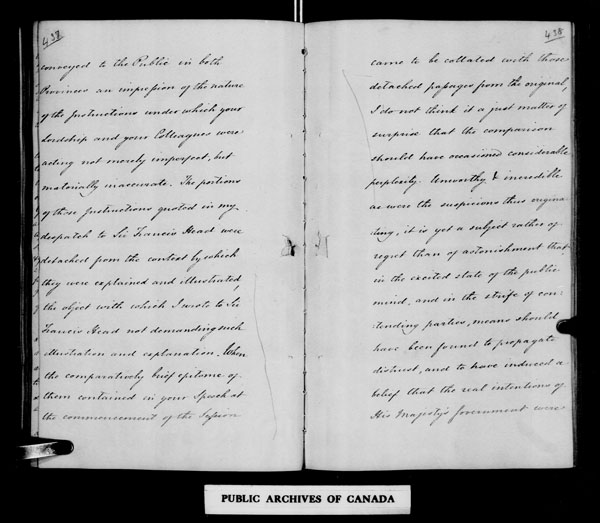 437
conveyed to the Public in both
Provinces an impression of the nature
of the Instructions under which your
Lordship and your Colleagues were
acting not merely imperfect, but
materially inaccurate. The portions
of those Instructions quoted in my
despatch to Sir Francis Head were
detached from the context by which
they were explained and illustrated,
the object with which I wrote to Sir
Francis Head not demanding such
illustration and explanation. When
the comparatively brief epitome of
them contained in your Speech at
the commencement of the Session
438
came to be collated with those
detached passages from the original,
I do not think it a just matter of
surprise that the comparison
should have occasioned considerable
perplexity. Unworthy & incredible
as were the suspicions thus origina
:ting, it is yet a subject rather of
regret than of astonishment that
in the excited state of the public
mind, and in the strife of con:
:tending parties, means should
have been found to propagate
distrust, and to have induced a
belief that the real intentions of
His Majesty's Government were
PUBLIC ARCHIVES OF CANADA